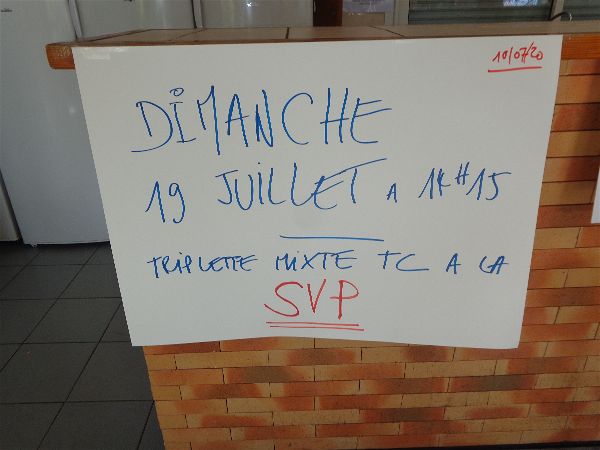 10/07/20
DIMANCHE
19 JUILLET A 14H15
TRIPLETTE MIXTE TC A LA
SVP